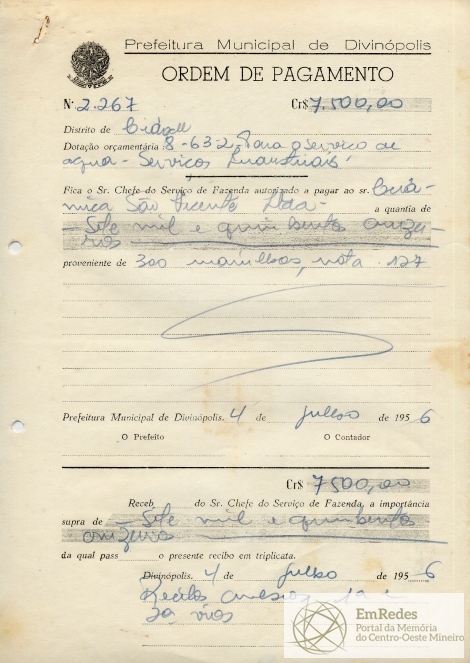 Prefeitura Municipal de Divinópolis
ORDEM DE PAGAMENTO
N.º 2.267 Cr$ 7.500,00
Distrito de Cidade
Dotação orçamentária: 8-63-2 Para o serviço de
agua - Serviços Industriais
Fica o Sr. Chefe do Serviço de Fazenda autorizado a pagar ao sr. Cerâ-
mica São Vicente Ltda - a quantia de
- Sete mil e quinhentos cruzei-
ros
proveniente de 300 manilhas, nota 127
Prefeitura Municipal de Divinópolis, 4 de julho de 1956
O Prefeito O Contador
Cr$ 7500,00
Receb do Sr. Chefe do Serviço de Fazenda, a importância
supra de - Sete mil e quinhentos
cruzeiros
da qual pass o presente recibo em triplicata.
Divinópolis, 4 de julho de 1956
1a e
2a vias
EmRedes
Portal da Memória
do Centro-Oeste Mineiro